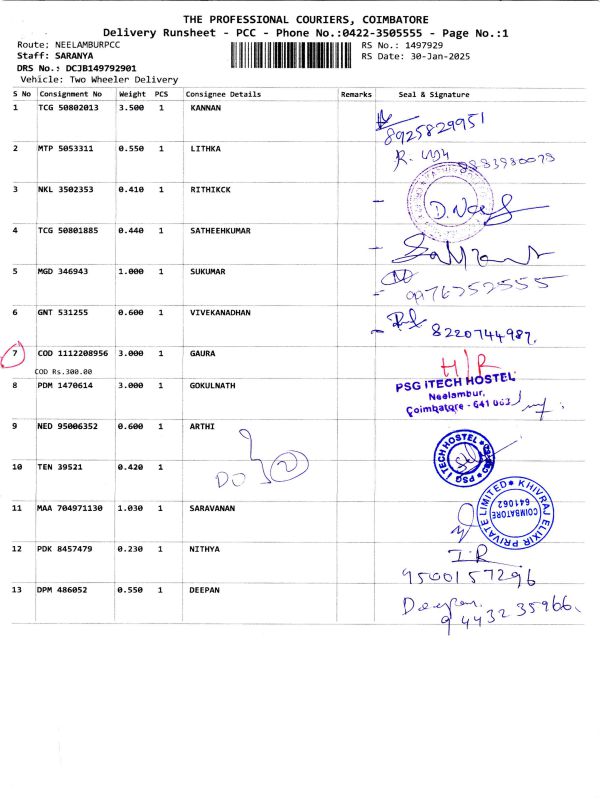 THE PROFESSIONAL COURIERS, COIMBATORE
Delivery Runsheet - PCC - Phone No.:0422-3505555 - Page No.:1
Route: NEELAMBURPCC
RS No.: 1497929
Staff: SARANYA
RS Date: 30-Jan-2025
DRS No.: DCJB149792901
Vehicle: Two Wheeler Delivery
S No Consignment No Weight PCS Consignee Details Remarks Seal & Signature
1 TCG 50802013 3.500 1 KANNAN
8925829951
2 MTP 5053311 0.550 1 LITHKA
9883980078
3 NKL 3502353 0.410 1 RITHIKCK
4 TCG 50801885 0.440 1 SATHEEHKUMAR
5 MGD 346943 1.000 1 SUKUMAR
9976752555
6 GNT 531255 0.600 1 VIVEKANADHAN
8220744987.
7 COD 1112208956 3.000 1 GAURA
H/R
COD Rs.300.00
PSG iTECH HOSTEL
8 PDM 1470614 3.000 1 GOKULNATH
Neelambur,
Coimbatore - 641 062
9 NED 95006352 0.600 1 ARTHI
PSG iTECH HOSTEL
10 TEN 39521 0.420 1
DO 2
11 MAA 704971130 1.030 1 SARAVANAN
KHIVRAJ ELIXIR PRIVATE LIMITED
COIMBATORE
641062
12 PDK 8457479 0.230 1 NITHYA
I.R
9500157296
13 DPM 486052 0.550 1 DEEPAN
Deepan.
9443235966.